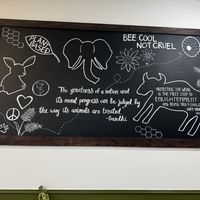 PLANT
BASED
BEE COOL
NOT CRUEL.
"The greatness of a nation and
its moral progress can be judged by
the way its animals are treated."
-Gandhi
RESPECTING THE ANIMAL
IS THE FIRST STEP TO
ENLIGHTENMENT
AND BEING TRULY